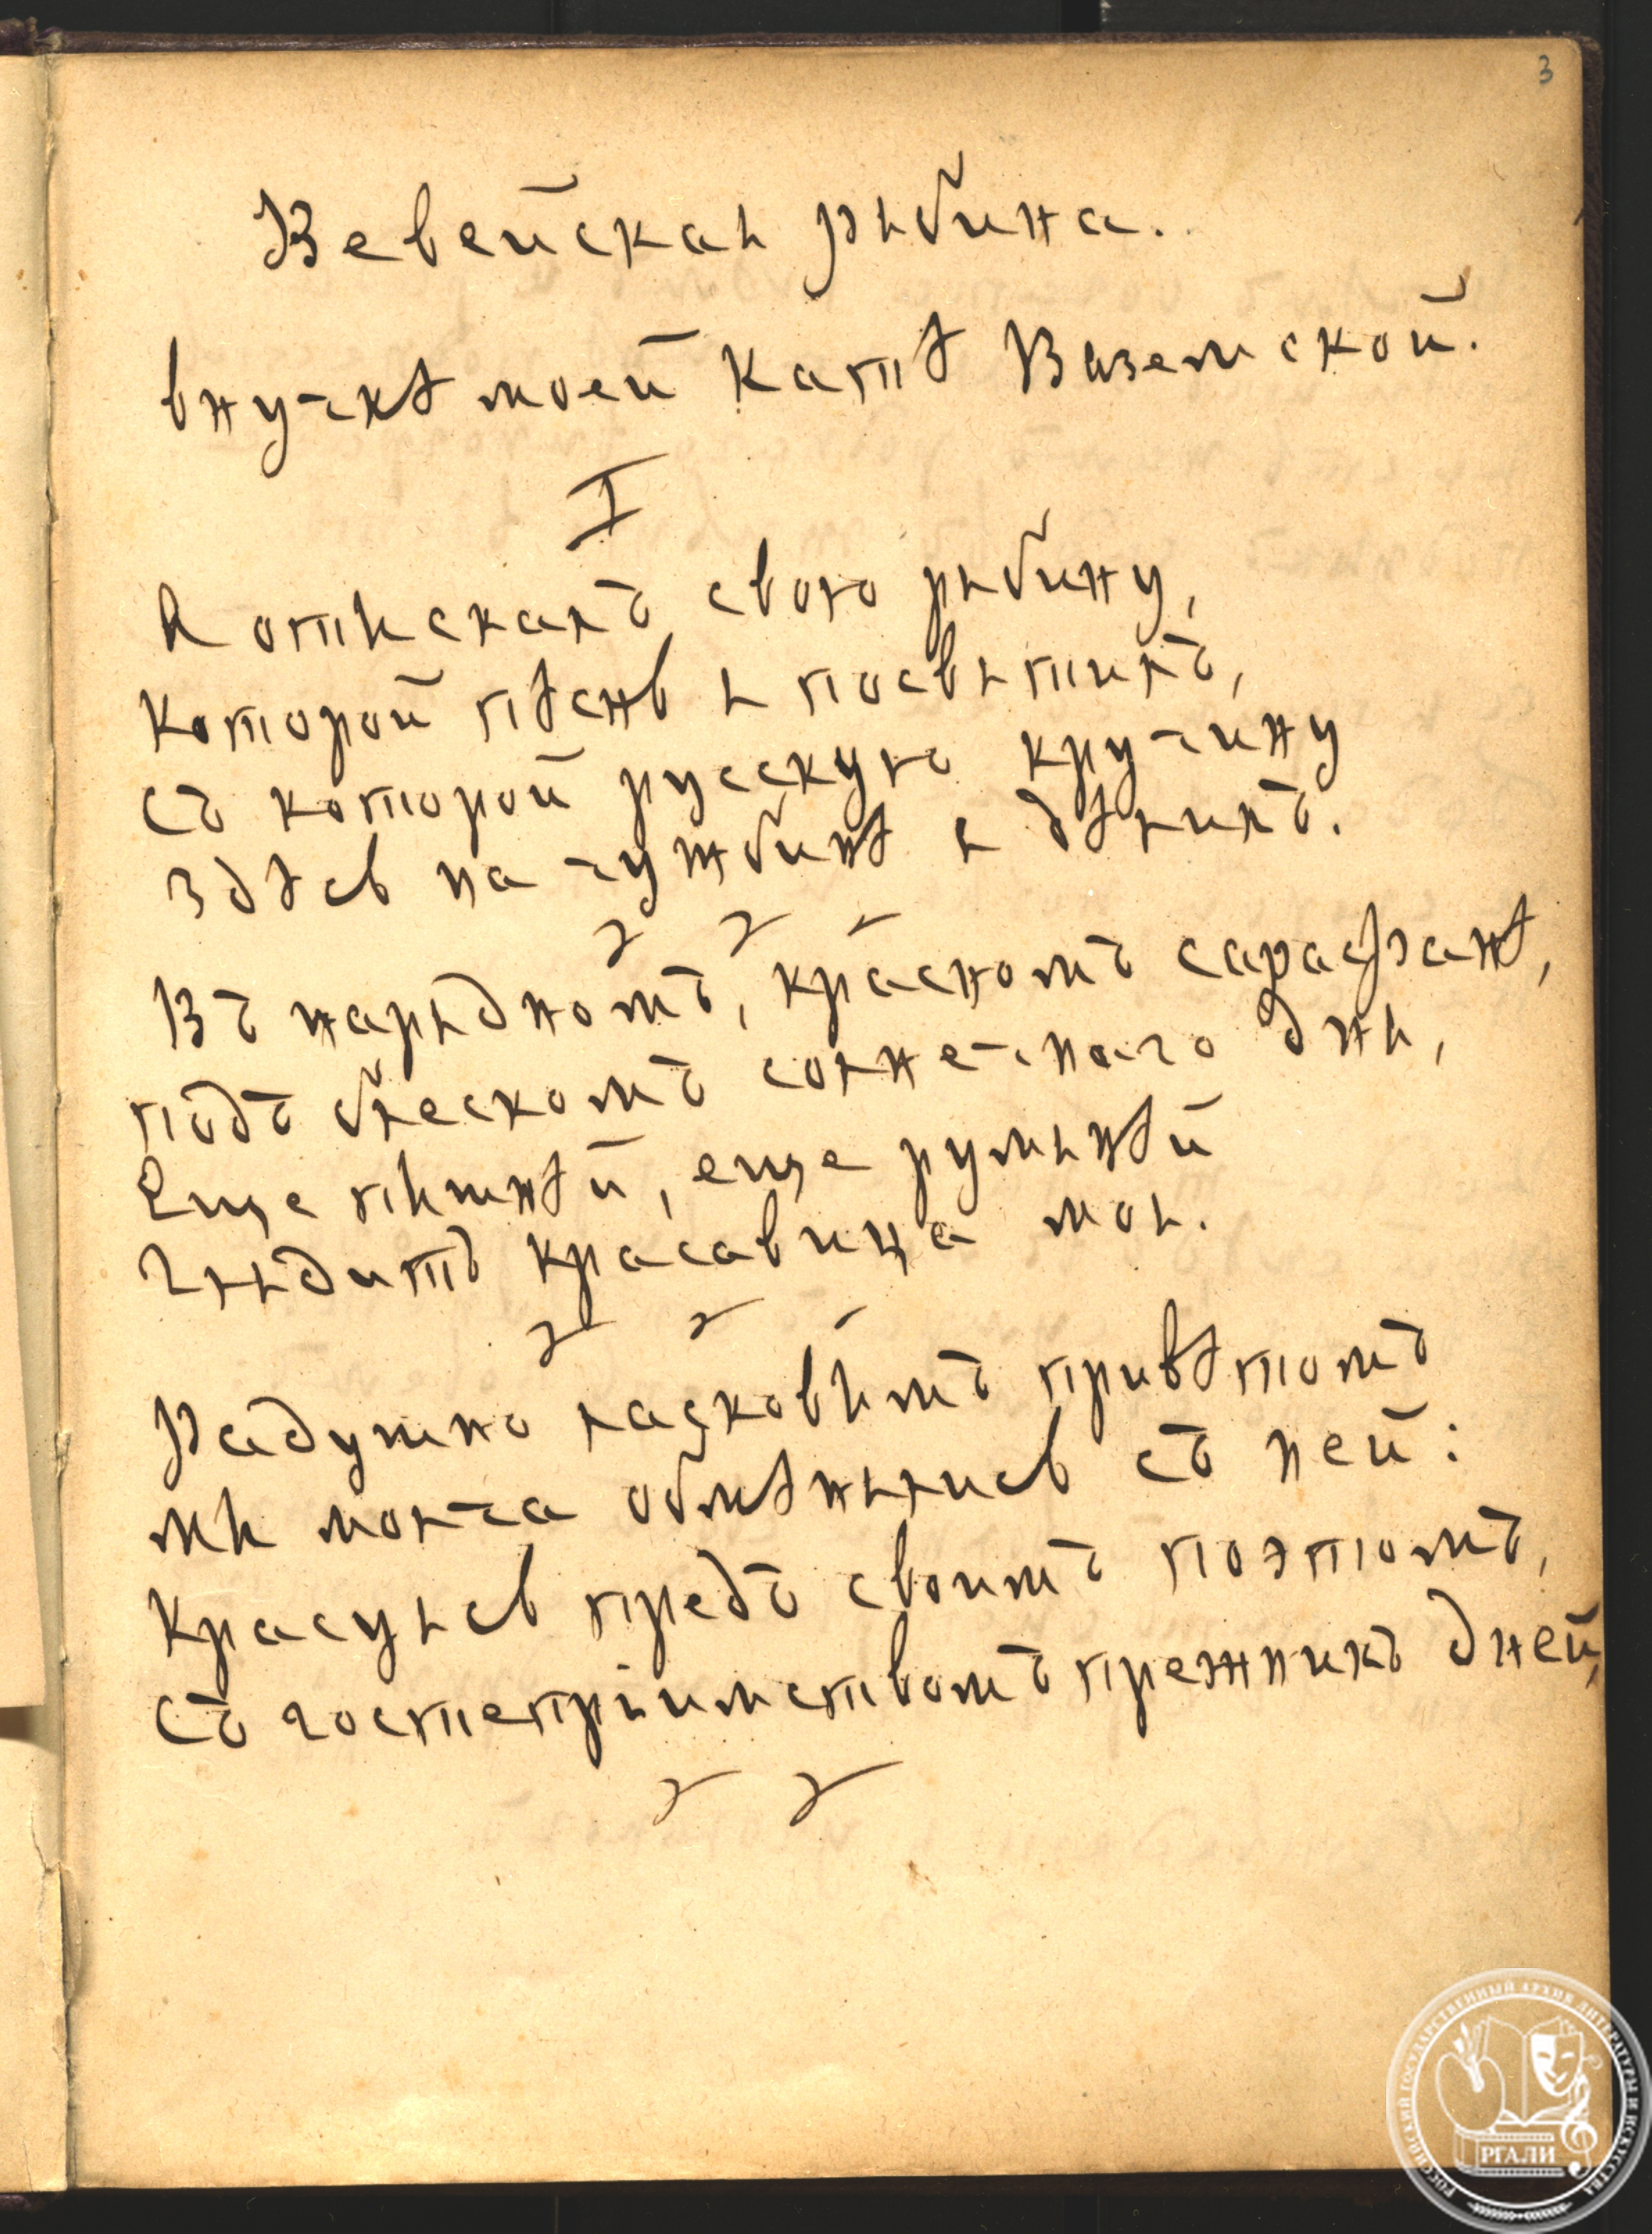 3
Вевейская рябина.
внучкѣ моей Катѣ Вяземской.
I
Я отыскалъ свою рябину,
Которой пѣснь я посвятилъ,
Съ которой русскую кручину
Здѣсь на чужбинѣ я дѣлилъ.
Въ нарядномъ, красномъ сарафанѣ,
подъ блескомъ солнечнаго дня,
Еще пышнѣй, еще румянѣй
Глядитъ красавица моя.
Радушно ласковымъ привѣтомъ
мы молча обмѣнялись съ ней:
Красуясь предъ своимъ поэтомъ,
Съ гостепріимствомъ прежнихъ дней,
РОССИЙСКИЙ ГОСУДАРСТВЕННЫЙ АРХИВ ЛИТЕРАТУРЫ И ИСКУССТВА
РГАЛИ